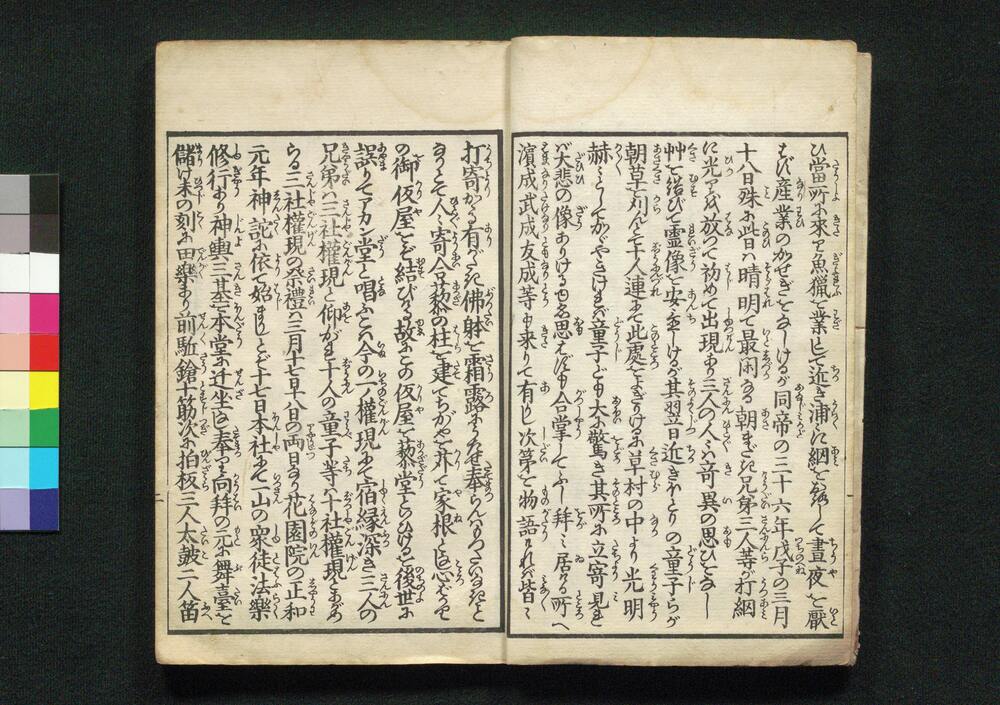 ひ當所に來り魚獵を業として近き浦々に網を卸して晝夜を厭
はず産業のかせぎをなしけるが同帝の三十六年戊子の三月
十八日殊に此日は晴明て最閑なる朝まだき兄弟三人等が打網
に光りを放つて初めて出現あり三人の人々奇異の思ひをなし
艸にて結びて靈像を安坐しけるが其翌日近きほとりの童子らが
朝草苅んと十人連にて此處をよぎりけるに草村の中より光明
赫々としてかゞやきければ童子ども大に驚き其所に立寄見れ
ば大悲の像ありけるゆゑ思はずも合掌してふし拜み居たる所へ
濵成武成友成等も來りて有し次第を物語ければ皆々
打寄かゝる有がたき佛躰を霜露にたせ奉らんはもつたいなきと
ありて人々寄合藜の柱を建てちがやを外て家根とし心ばかり
の御仮屋をぞ結びける故にこの仮屋を藜堂といひけるを後世に
誤りてアカン堂と唱ふこれ今の一權現にて宿縁深き三人の
兄弟は三社權現と仰がれ十人の童子等は十社權現とあが
らる三社權現の祭禮は三月十七日十八日の両日なり花園院の正和
元年神詫に依て始まりしとぞ十七日本社にて一山の衆徒法樂
修行あり神輿三基を本堂に迁坐し奉つり向拜の元に舞臺を
儲け未の刻に田樂あり前駈鎗十筋次に拍板三人太皷二人笛